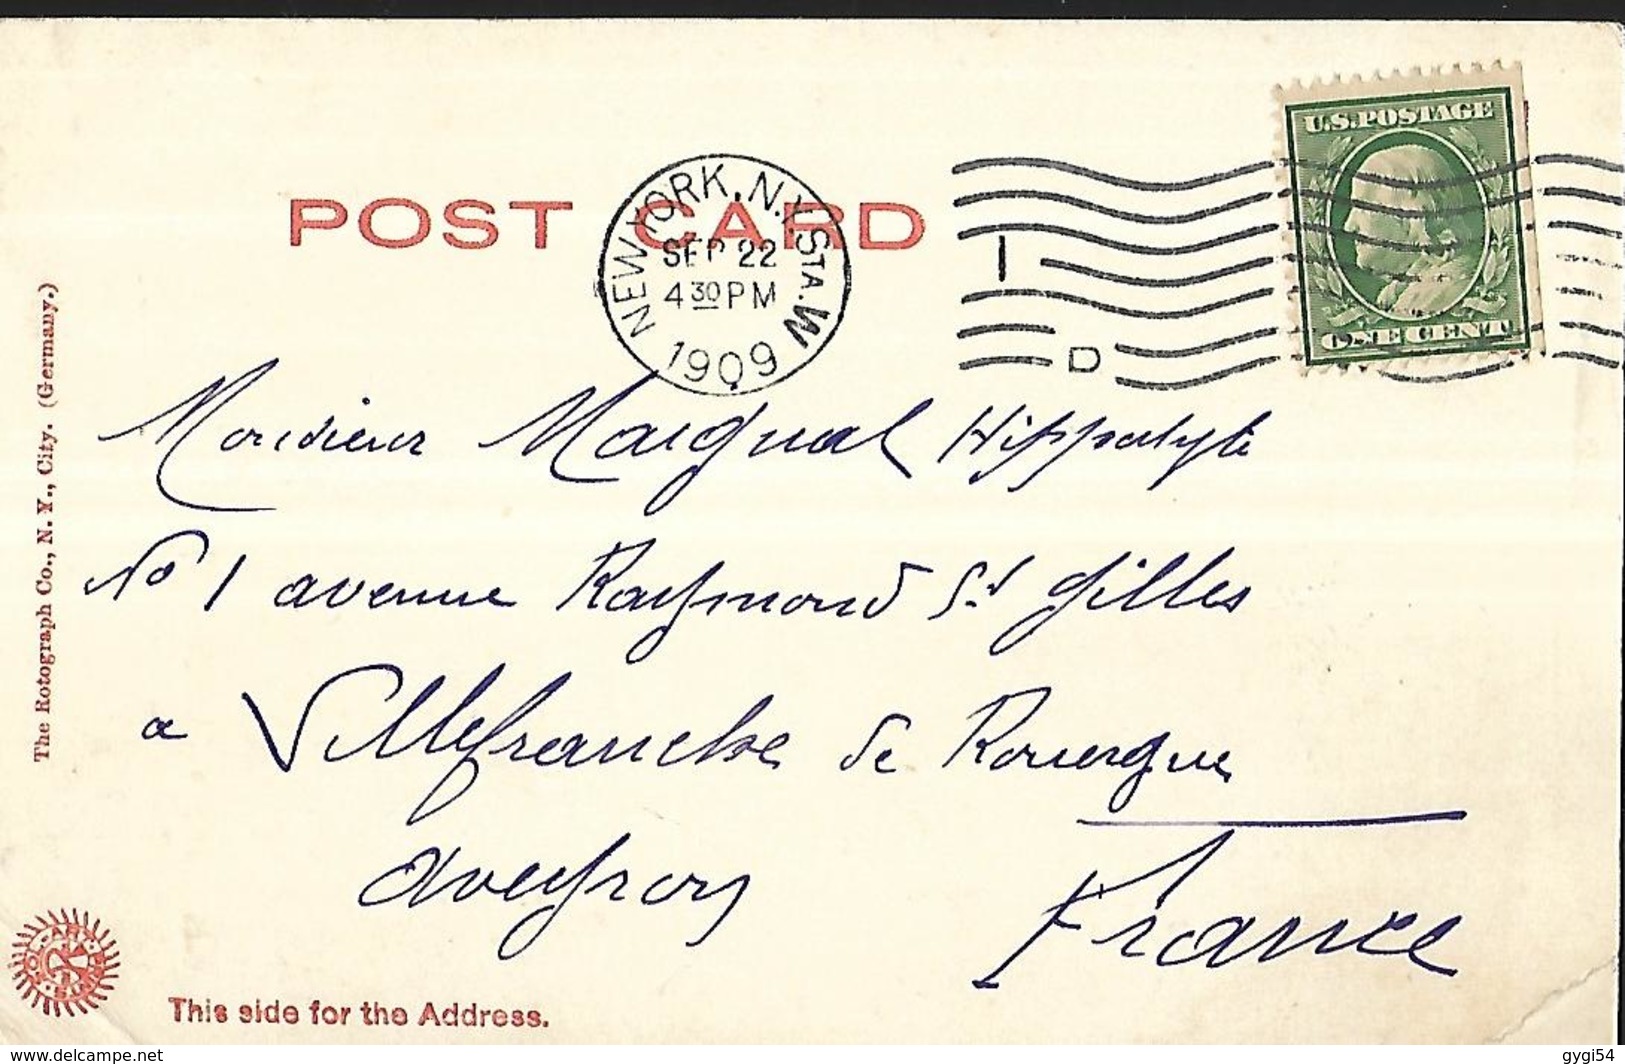 POST CARD
NEW YORK, N.Y. STA. W
SEP 22
4 30 PM
1909
I
D
U.S. POSTAGE
ONE CENT
Monsieur Hippolyte
No 1 avenue Raymond St Gilles
a Villefranche de Rouergue
Aveyron
France
The Rotograph Co., N. Y., City. (Germany.)
This side for the Address.
www.delcampe.net
gygi54